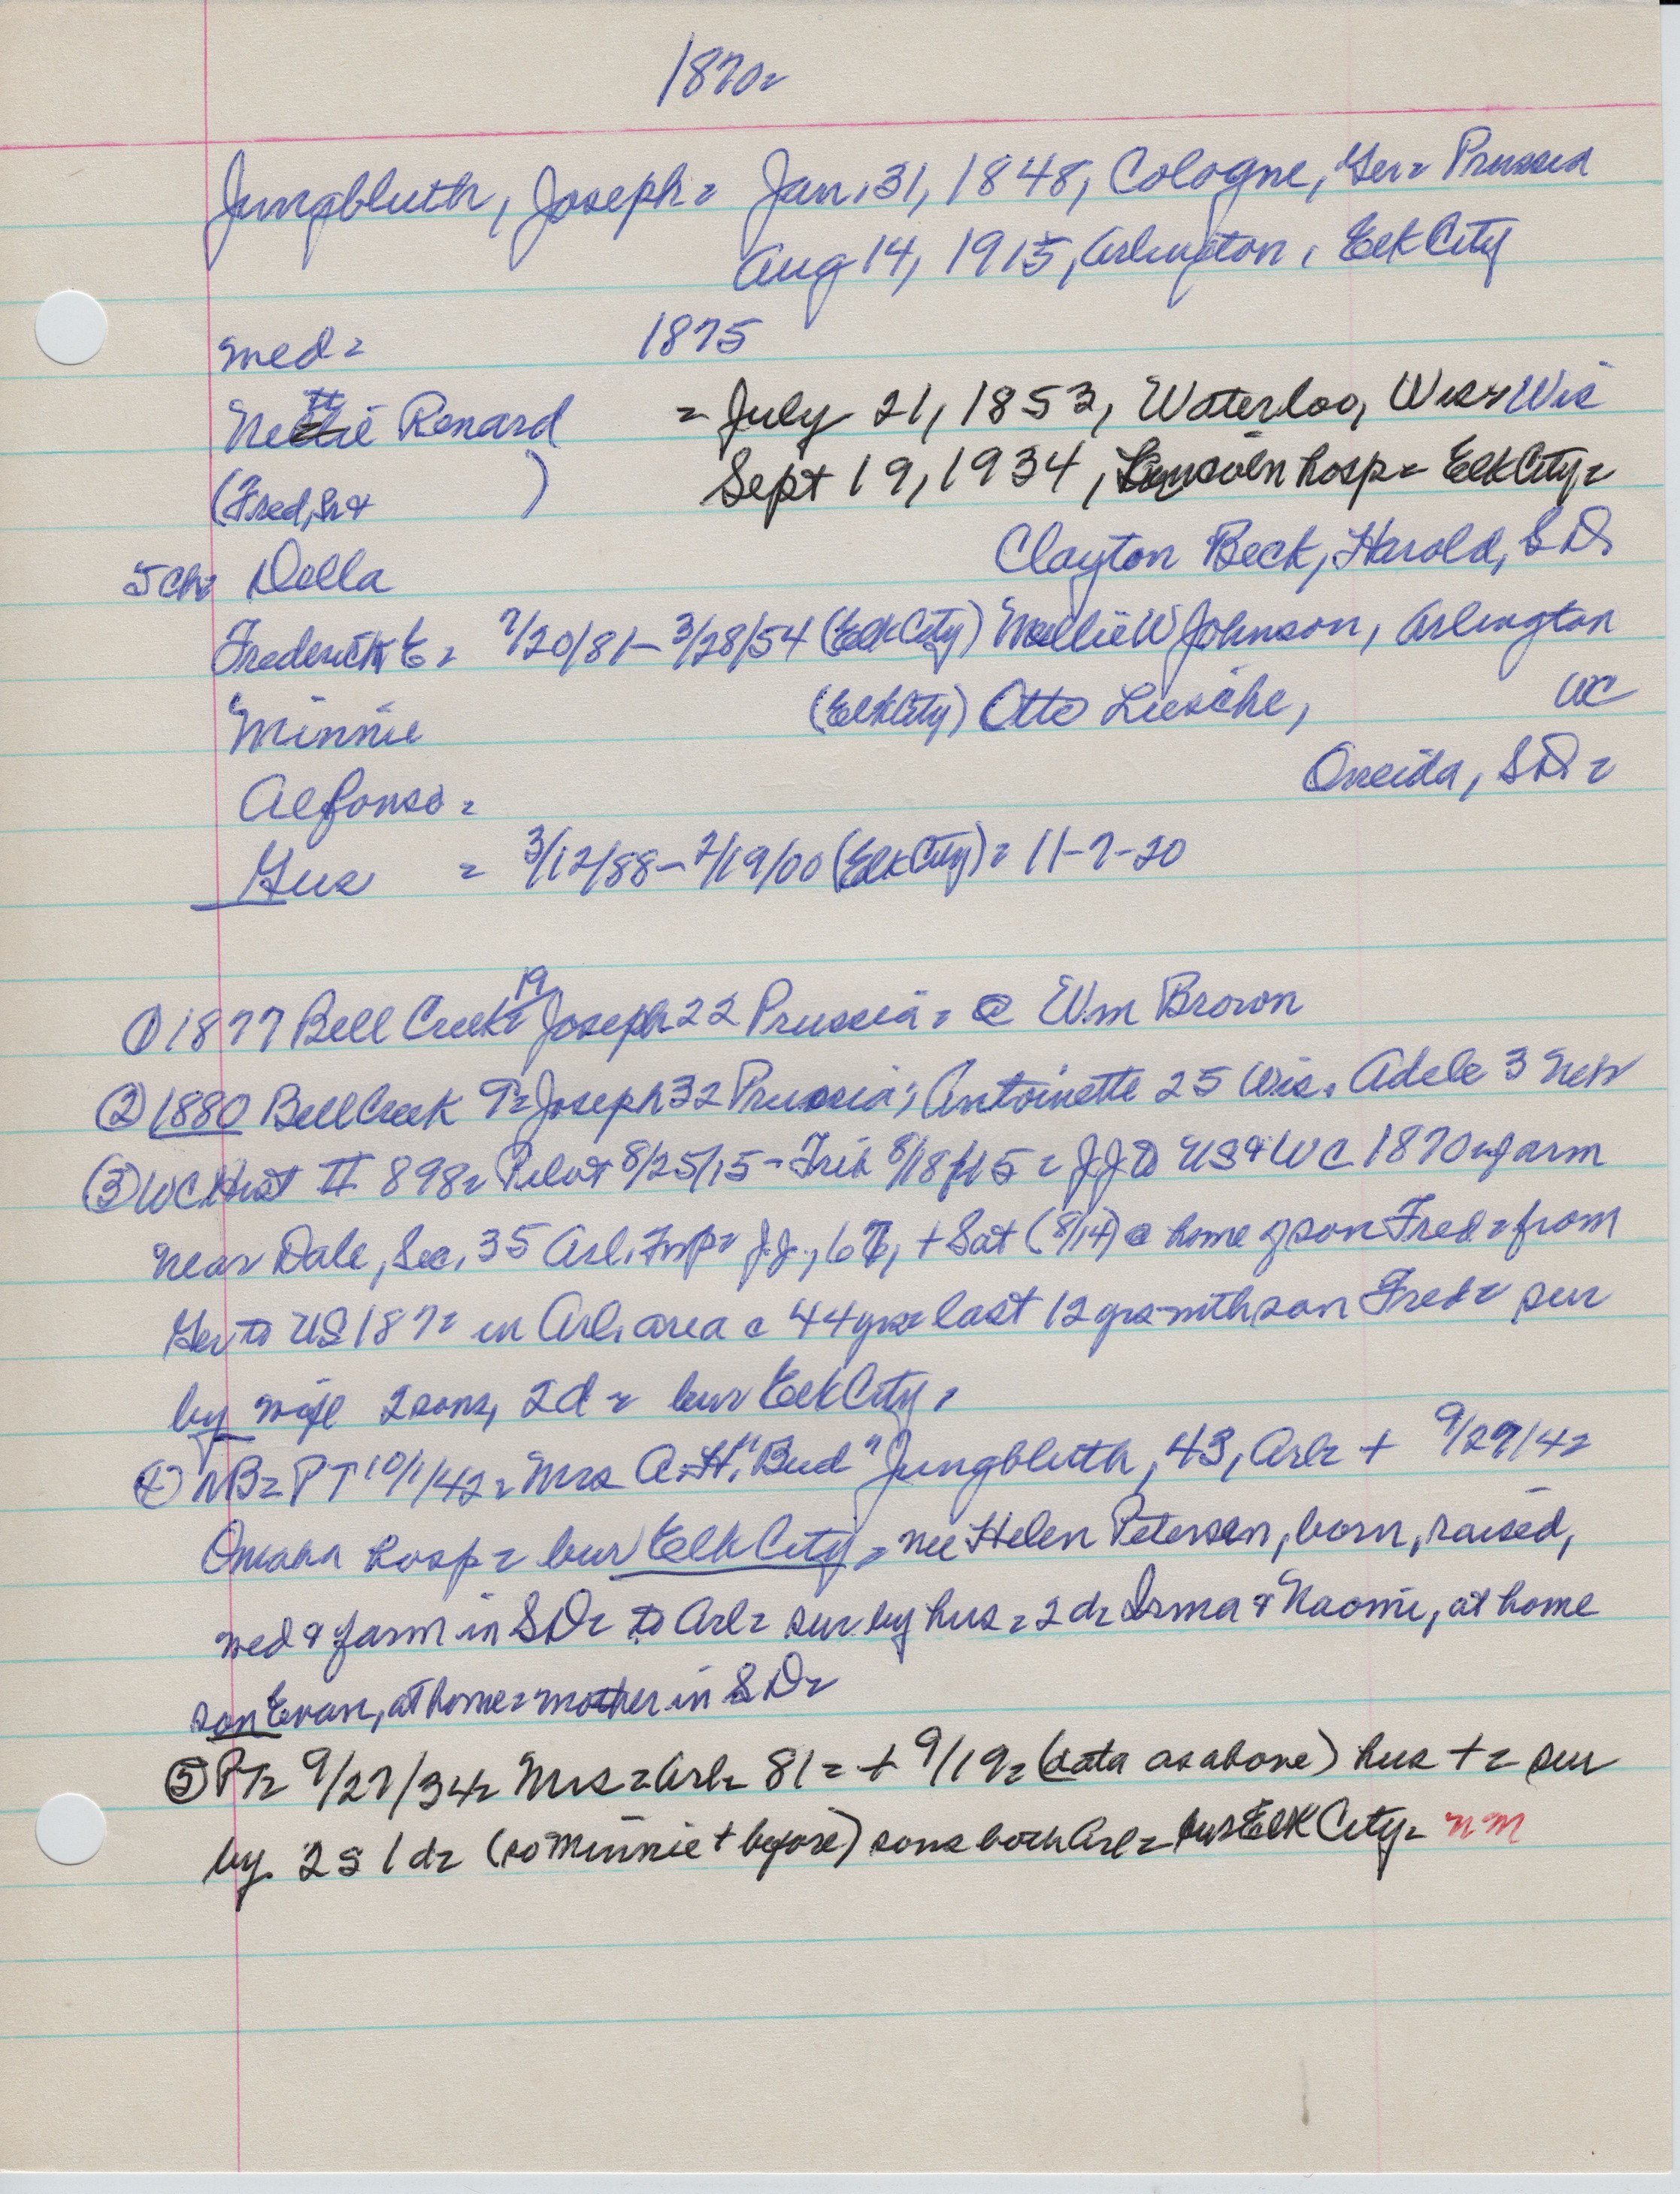 1870=
Jungbluth, Joseph = Jan. 31, 1848, Cologne, Ger = Prussia
Aug 14, 1915, Arlington, Elk City
med = 1875
Nettie Renard = July 21, 1853, Waterloo, Wis & Wis
(Fred, Sr & ) Sept 19, 1934, hosp = Elk City =
5 ch = Della Clayton Beck, Harold, SD
Frederick E = 7/20/81 - 3/28/54 (Elk City) Mellie W Johnson, Arlington
Minnie (Elk City) Otto Liesche, WC
Alfonso = Oneida, SD =
Gus = 3/12/88 - 2/19/00 (Elk City) = 11-7-20
① 1877 Bell Creek = 19 Joseph 22 Prussia = @ Wm Brown
② 1880 Bell Creek P = Joseph 32 Prussia; Antoinette 25 Wis. Adele 3 Neb
③ WC Hist II 898 = Pilot 8/25/15 - Trib 8/18/15 = JJ to US & WC 1870 = farm
near Dale, Sec. 35 Arl. Twp = J.J., 67, + Sat (8/14) @ home of son Fred = from
Ger to US 187= in Arl. area c 44 yrs = last 12 yrs with son Fred = sur
by wife 2 sons, 2 d = bur Elk City =
④ NB = PT 10/1/42 = Mrs A.H. "Bud" Jungbluth, 43, Arl = + 9/27/42
Omaha hosp = bur Elk City = nee Helen Petersen, born, raised,
med & farm in SD = to Arl = sur by hus = 2 d = Irma & Naomi, at home
son Evan, at home = mother in SD =
⑤ PT = 9/27/34 = Mrs = Arl = 81 = + 9/19 = (data as above) hus + = sur
by 2 s 1 d = (so Minnie + before) sons both Arl = bur Elk City = nm